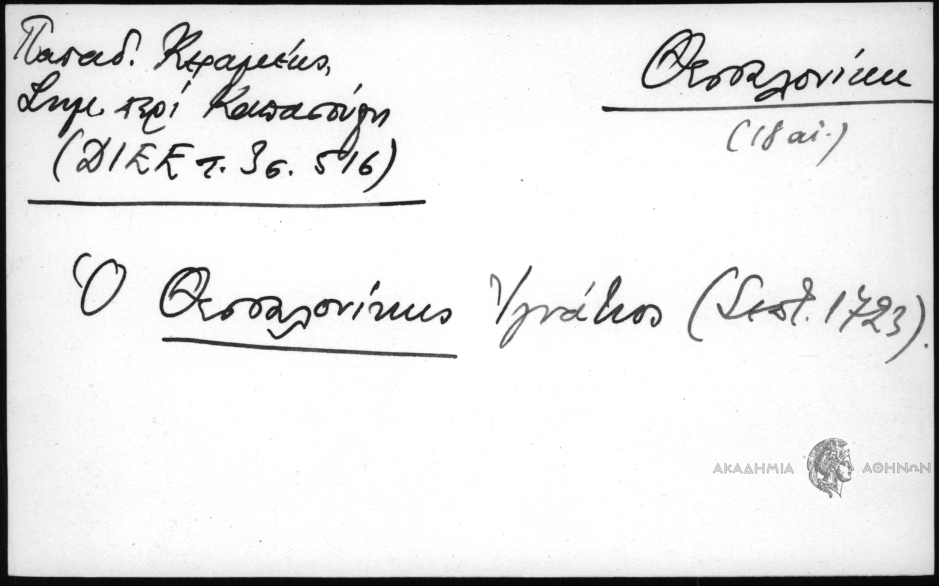 Παπαδ. Κεραμέως,
Σημ. περί Καπασούφη
(ΔΙΕΕ τ. 3 σ. 516)
Θεσσαλονίκη
(18 αἰ.)
Ὁ Θεσσαλονίκης Ἰγνάτιος (Σεπτ. 1723).
ΑΚΑΔΗΜΙΑ ΑΘΗΝΩΝ